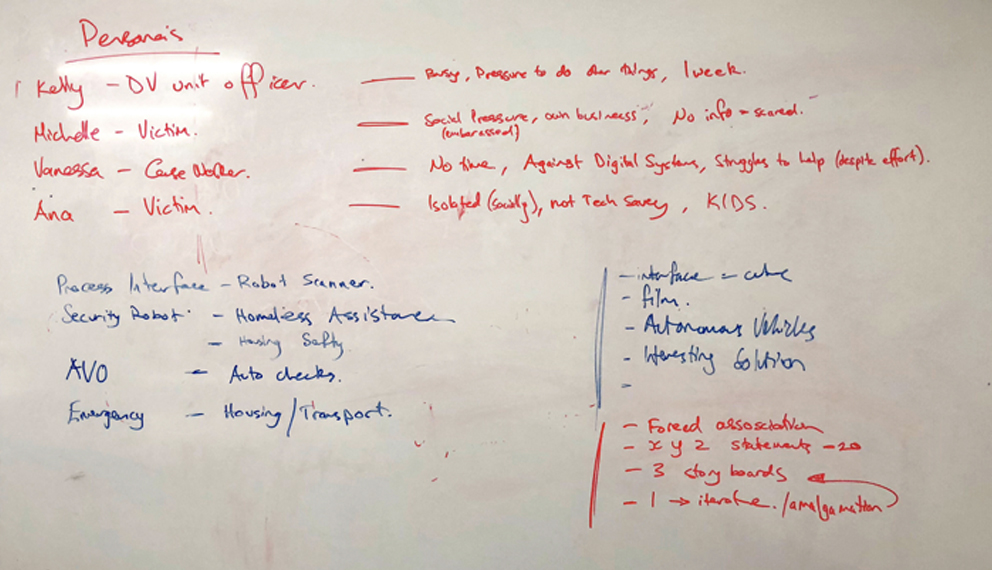 Personas
Kelly - DV unit officer. — Busy, Pressure to do other things, 1 week.
Michelle - Victim. — Social Pressure, own business, No info = scared.
(embarassed)
Vanessa - Case Worker. — No time, Against Digital Systems, Struggles to help (despite effort).
Ana - Victim. — Isolated (socially), not Tech Savey, KIDS.
Process Interface - Robot Scanner.
Security Robot - Homeless Assistance
- Housing Safty
AVO - Auto checks.
Emergency - Housing/Transport.
- interface = cube
- film.
- Autonomous Vehicles
- Interesting Solution
-
- Forced assosciation
- x y z statements - 20
- 3 story boards
- 1 → iterate./amalgamation